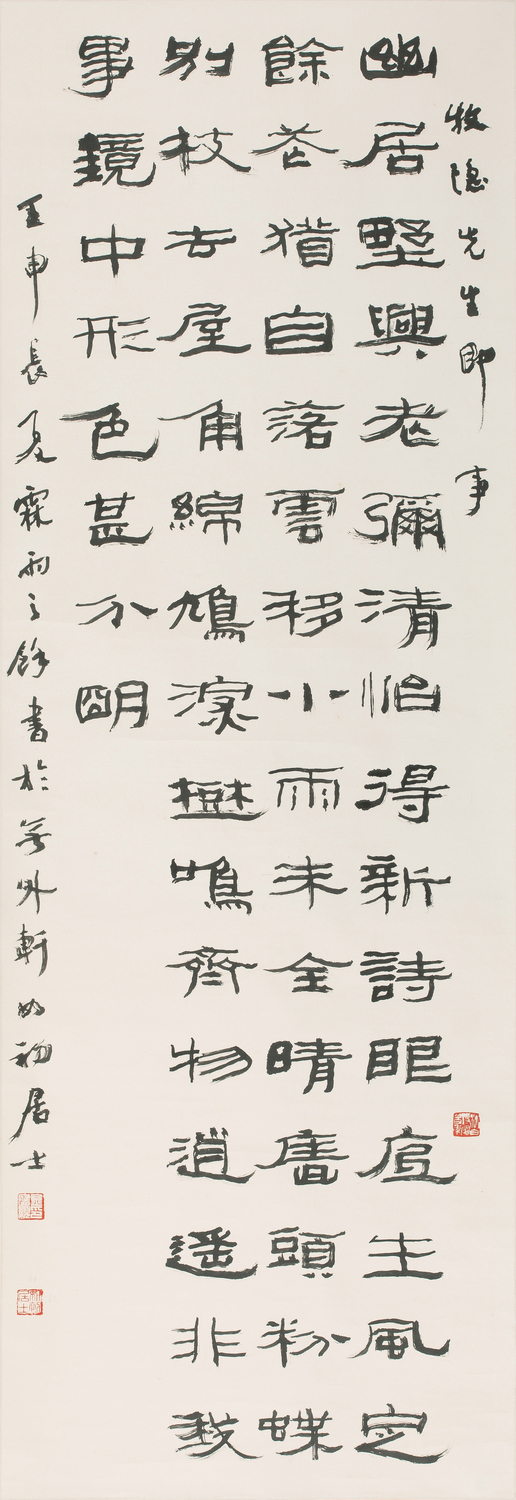 牧隱先生即事
幽居野興老彌清恰得新詩眼底生風定
餘花猶自落雲移小雨未全晴墻頭粉蝶
別枝去屋角綿鳩深樹鳴齊物逍遙非我
事鏡中形色甚分明
壬申長夏霖雨之餘書於無外軒如初居士